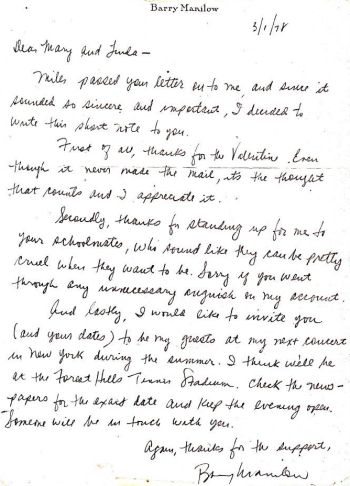 Barry Manilow
3/1/78
Dear Mary and Linda—
Miles passed your letter on to me, and since it
sounded so sincere and important, I decided to
write this short note to you.
First of all, thanks for the Valentine. Even
though it never made the mail, its the thought
that counts and I appreciate it.
Secondly, thanks for standing up for me to
your schoolmates, who sound like they can be pretty
cruel when they want to be. Sorry if you went
through any unnecessary anguish on my account.
And lastly, I would like to invite you
(and your dates) to be my guests at my next concert
in New York during the summer. I think we'll be
at the Forest Hills Tennis Stadium. Check the news-
papers for the exact date and keep the evening open.
Someone will be in touch with you.
Again, thanks for the support,
Barry Manilow